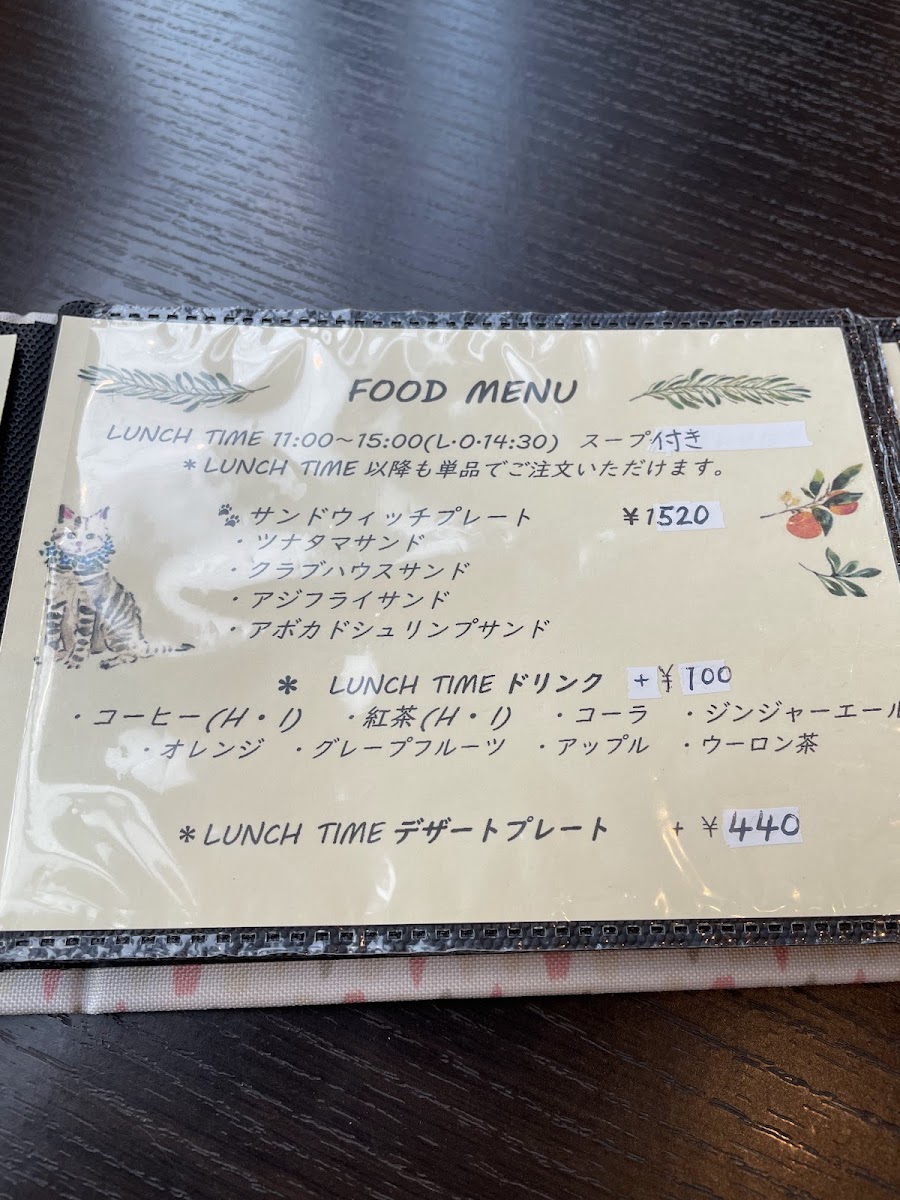 FOOD MENU
LUNCH TIME 11:00～15:00(L·O·14:30) スープ付き
＊LUNCH TIME 以降も単品でご注文いただけます。
サンドウィッチプレート ￥1520
・ツナタマサンド
・クラブハウスサンド
・アジフライサンド
・アボカドシュリンプサンド
＊ LUNCH TIME ドリンク +￥100
・コーヒー(H・I) ・紅茶(H・I) ・コーラ ・ジンジャーエール
・オレンジ ・グレープフルーツ ・アップル ・ウーロン茶
＊LUNCH TIME デザートプレート + ￥440